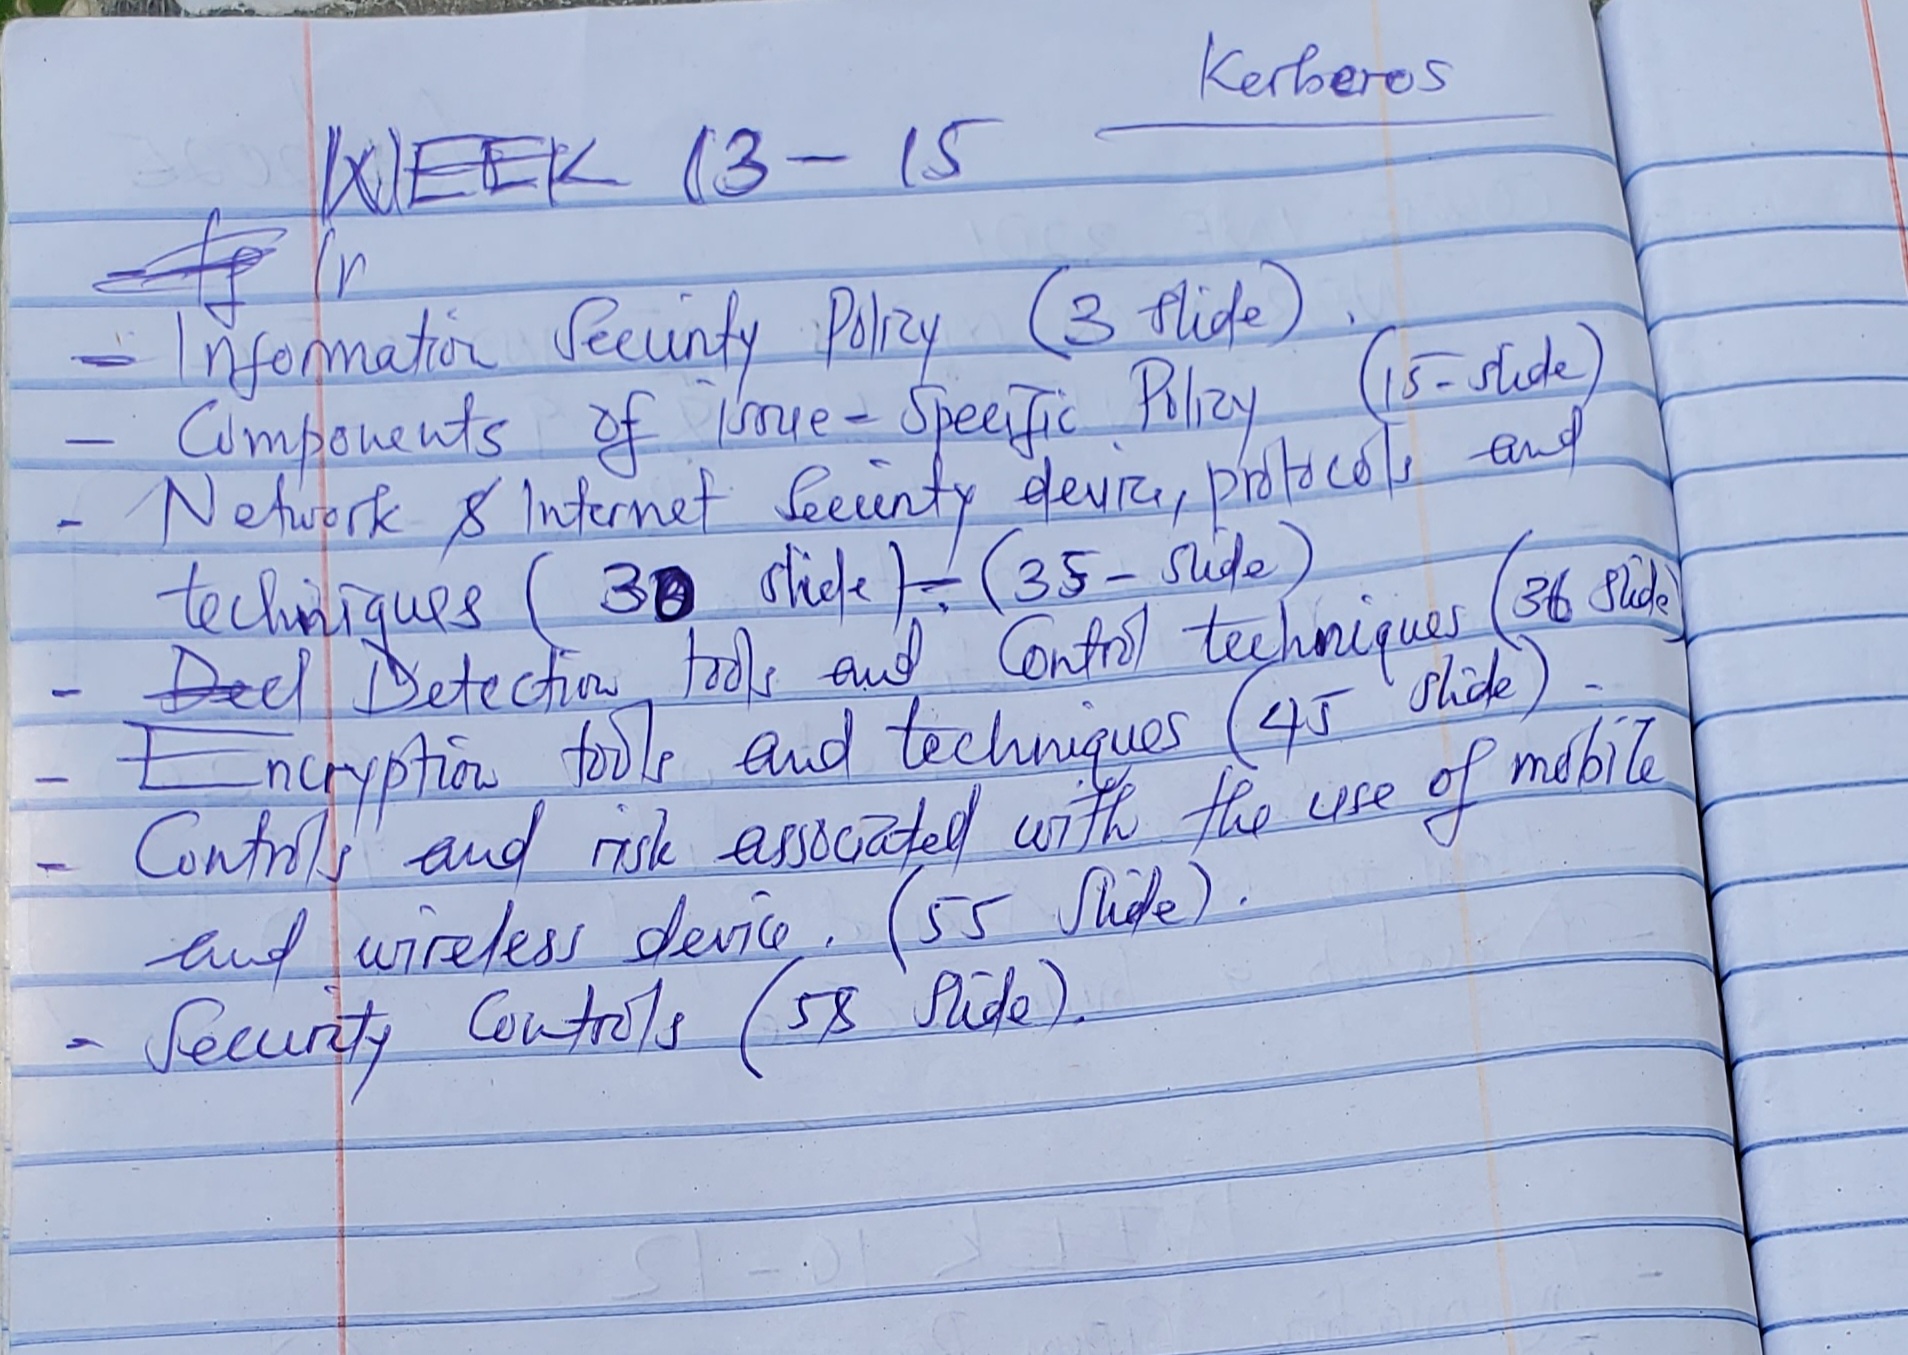 Kerberos
WEEK 13 - 15
In
- Information Security Policy (3 slide).
- Components of issue-specific Policy (15-slide)
- Network & Internet Security device, protocols and
techniques (30 slide) - (35-slide)
- Detection tools and Control techniques (36 slide)
- Encryption tools and techniques (45 slide).
- Controls and risk associated with the use of mobile
and wireless device. (55 slide).
- Security Controls (58 slide).